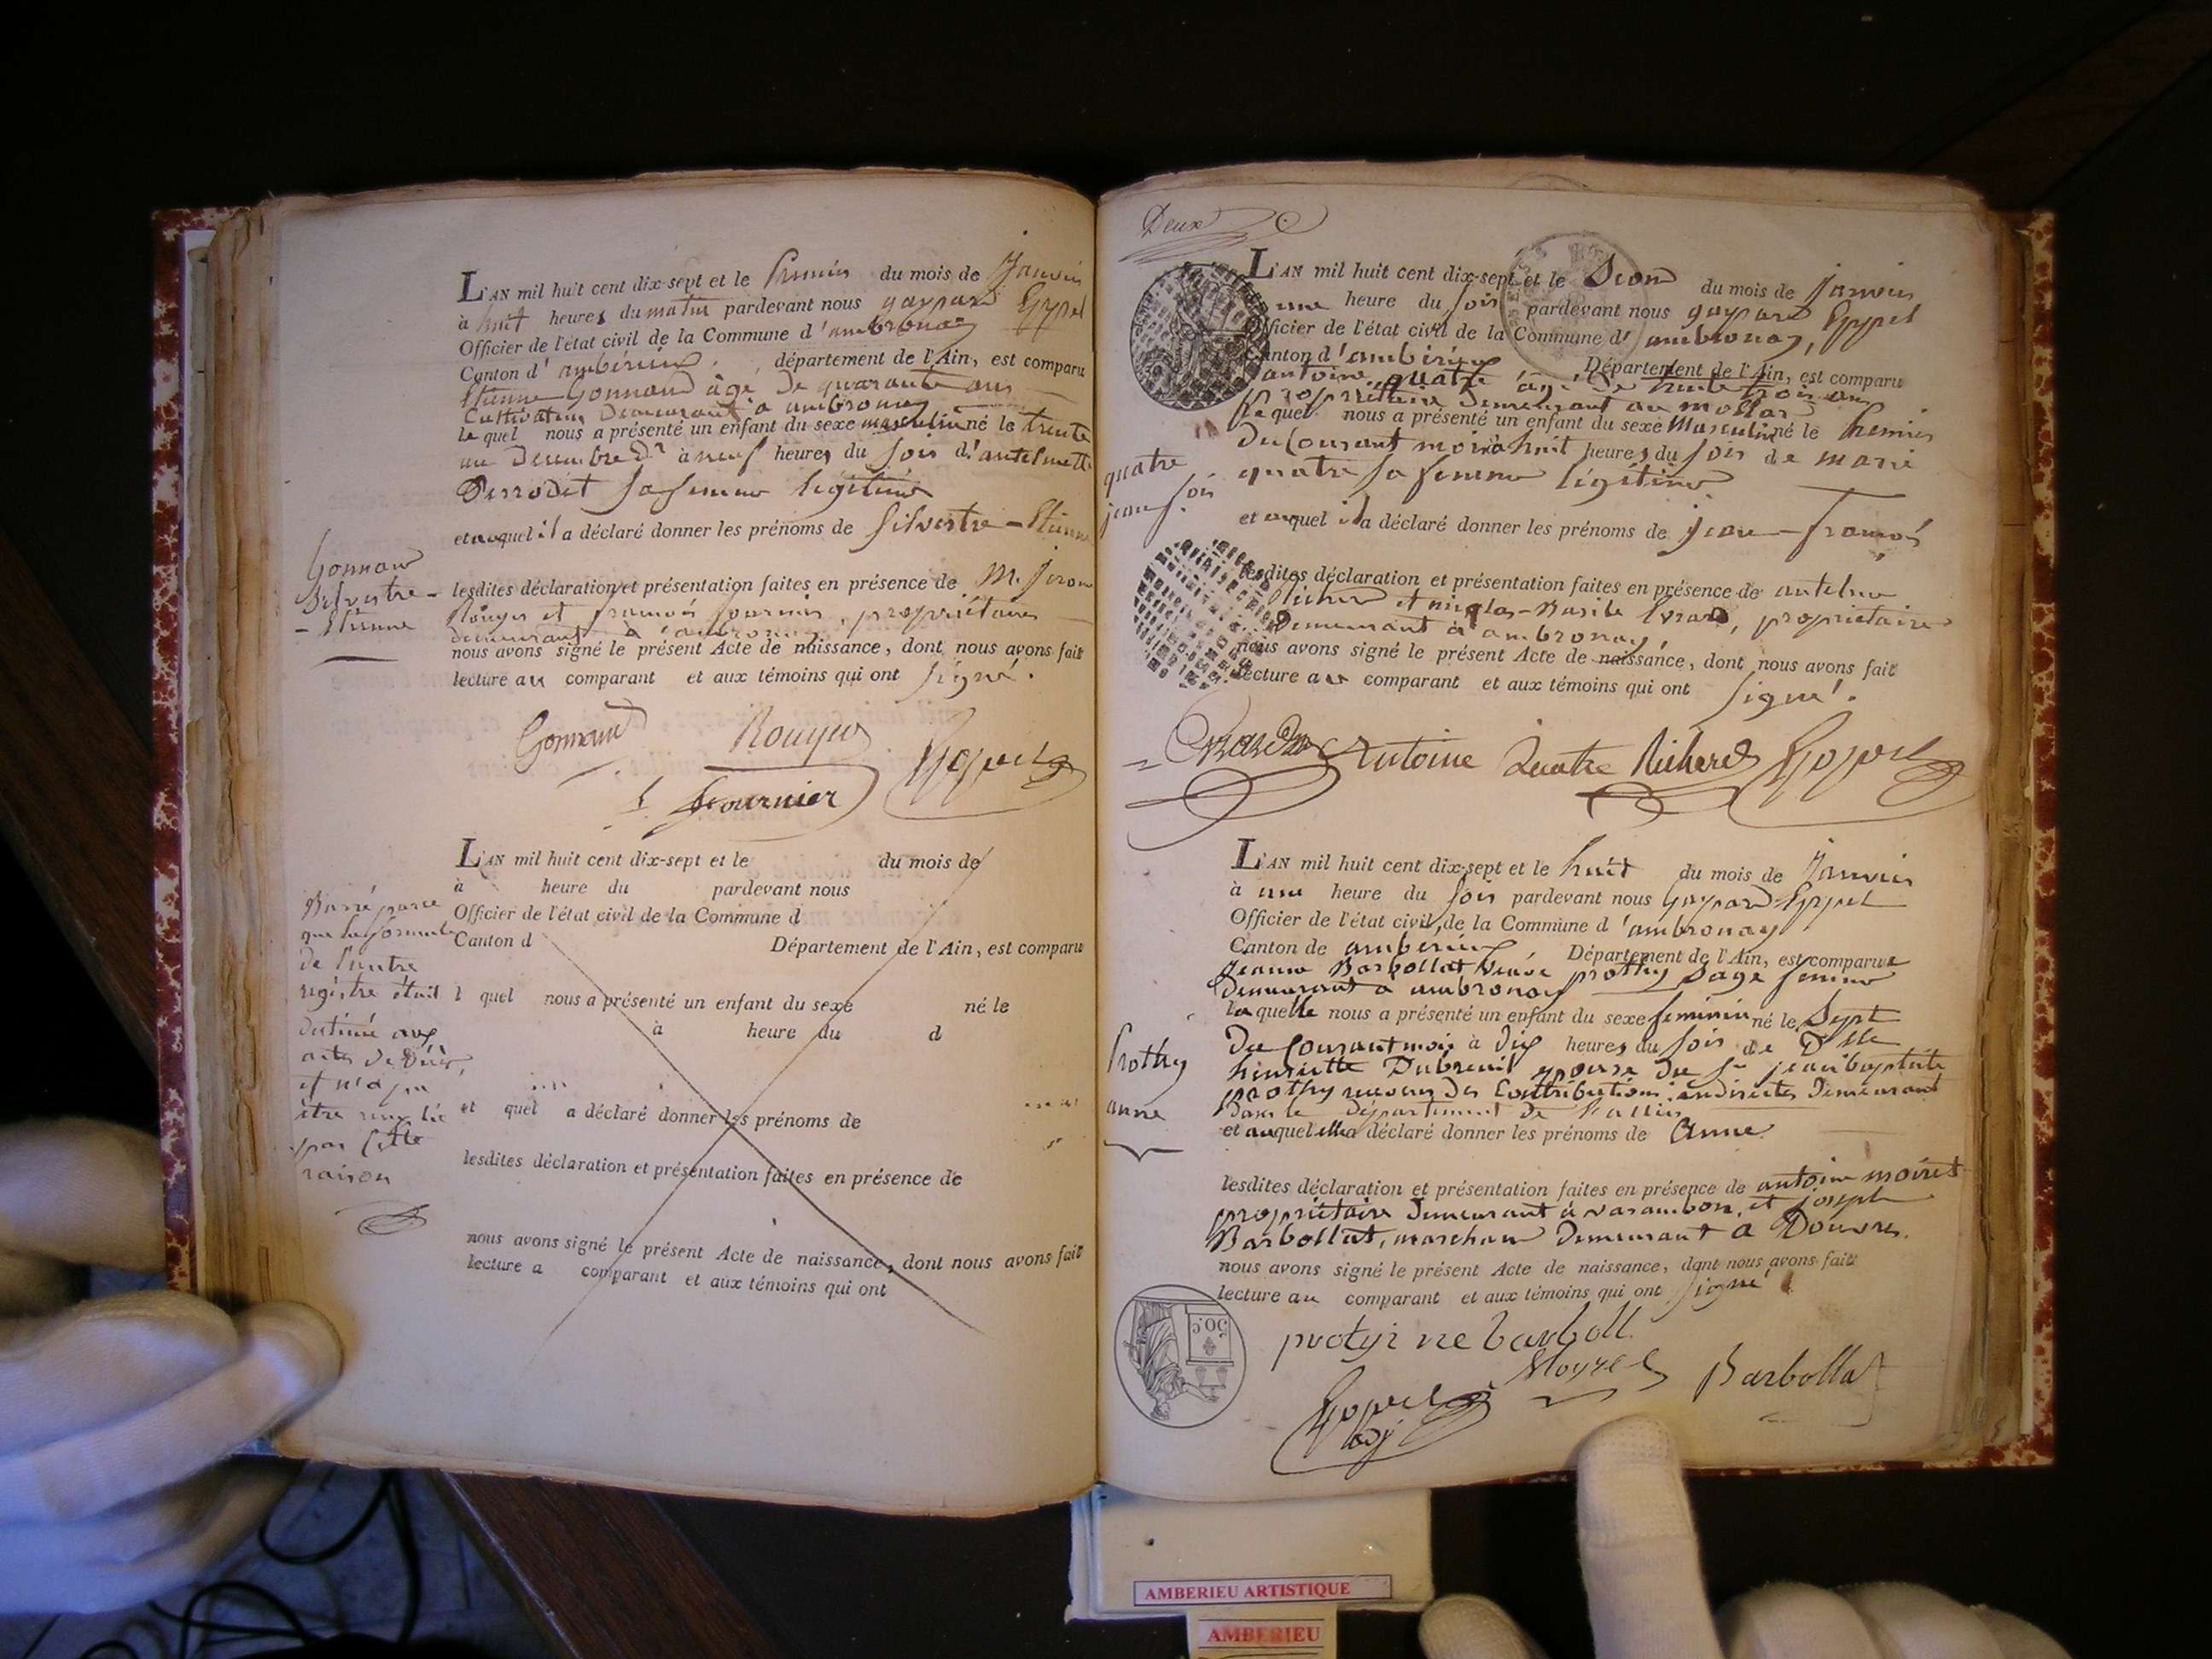 L'AN mil huit cent dix-sept et le Premier du mois de Janvier
à huit heures du matin pardevant nous gaspard Eppel
Officier de l'état civil de la Commune d'ambronay
Canton d'ambérieux, département de l'Ain, est comparu
Etienne Gonnand âgé de quarante ans
Cultivateur Demeurant à ambronay
lequel nous a présenté un enfant du sexe masculin né le trente
un Decembre Dr à neuf heures du soir d'antelmette
Derrodet sa femme légitime
et auquel il a déclaré donner les prénoms de Silvestre - Etienne
Gonnand
Silvestre -
- Etienne
lesdites déclaration et présentation faites en présence de M. Jirome
Rouyer et françois fournier, propriétaires
demeurant à ambronay
nous avons signé le présent Acte de naissance, dont nous avons fait
lecture au comparant et aux témoins qui ont signé.
Gonnand Rouyer Eppel
f. fournier
L'AN mil huit cent dix-sept et le du mois de
à heure du pardevant nous
Officier de l'état civil de la Commune d
Canton d Département de l'Ain, est comparu
l quel nous a présenté un enfant du sexe né le
à heure du d
et quel a déclaré donner les prénoms de
lesdites déclaration et présentation faites en présence de
nous avons signé le présent Acte de naissance, dont nous avons fait
lecture a comparant et aux témoins qui ont
Barré parce
que la formule
de l'autre
registre était
destinée aux
actes de Décès,
et n'a pu
être remplie
par cette
raison
Deux
L'AN mil huit cent dix-sept et le Second du mois de janvier
une heure du soir pardevant nous gaspard Eppel
Officier de l'état civil de la Commune d'ambronay,
Canton d'ambérieux Département de l'Ain, est comparu
antoine quatre âgé de trente trois ans
Propriétaire demeurant au mollard
lequel nous a présenté un enfant du sexe Masculin né le Premier
du Courant mois à huit heures du soir de marie
quatre sa femme légitime
quatre
jean fois
et auquel il a déclaré donner les prénoms de jean - françois
lesdites déclaration et présentation faites en présence de antelme
Richerd et niqlas-Basile Evrard, propriétaire
Demeurant à ambronay,
nous avons signé le présent Acte de naissance, dont nous avons fait
lecture au comparant et aux témoins qui ont signé.
Antoine Quatre Richerd Eppel
L'AN mil huit cent dix-sept et le huit du mois de Janvier
à une heure du soir pardevant nous Gaspard Eppel
Officier de l'état civil de la Commune d'ambronay
Canton de ambérieux Département de l'Ain, est comparue
Jeanne Barbollat Veuve prothy Sage femme
Demeurant à ambronay
laquelle nous a présenté un enfant du sexe feminin né le Sept
Du Courant mois à dix heures du soir de Dlle
henriette Dubreuil epouse du Sr jean baptiste
prothy receveur des Contributions indirectes demeurant
Dans le Département de l'allier
et auquel elle a déclaré donner les prénoms de Anne
Prothy
anne
lesdites déclaration et présentation faites en présence de antoine moiret
propriétaire demeurant à varambon, et joseph
Barbollat, marchand demeurant à Douvres.
nous avons signé le présent Acte de naissance, dont nous avons fait
lecture au comparant et aux témoins qui ont signé
50.c
protyi ne barboll.
Moyret Barbollat
Eppel
adj
AMBERIEU ARTISTIQUE
AMBERIEU